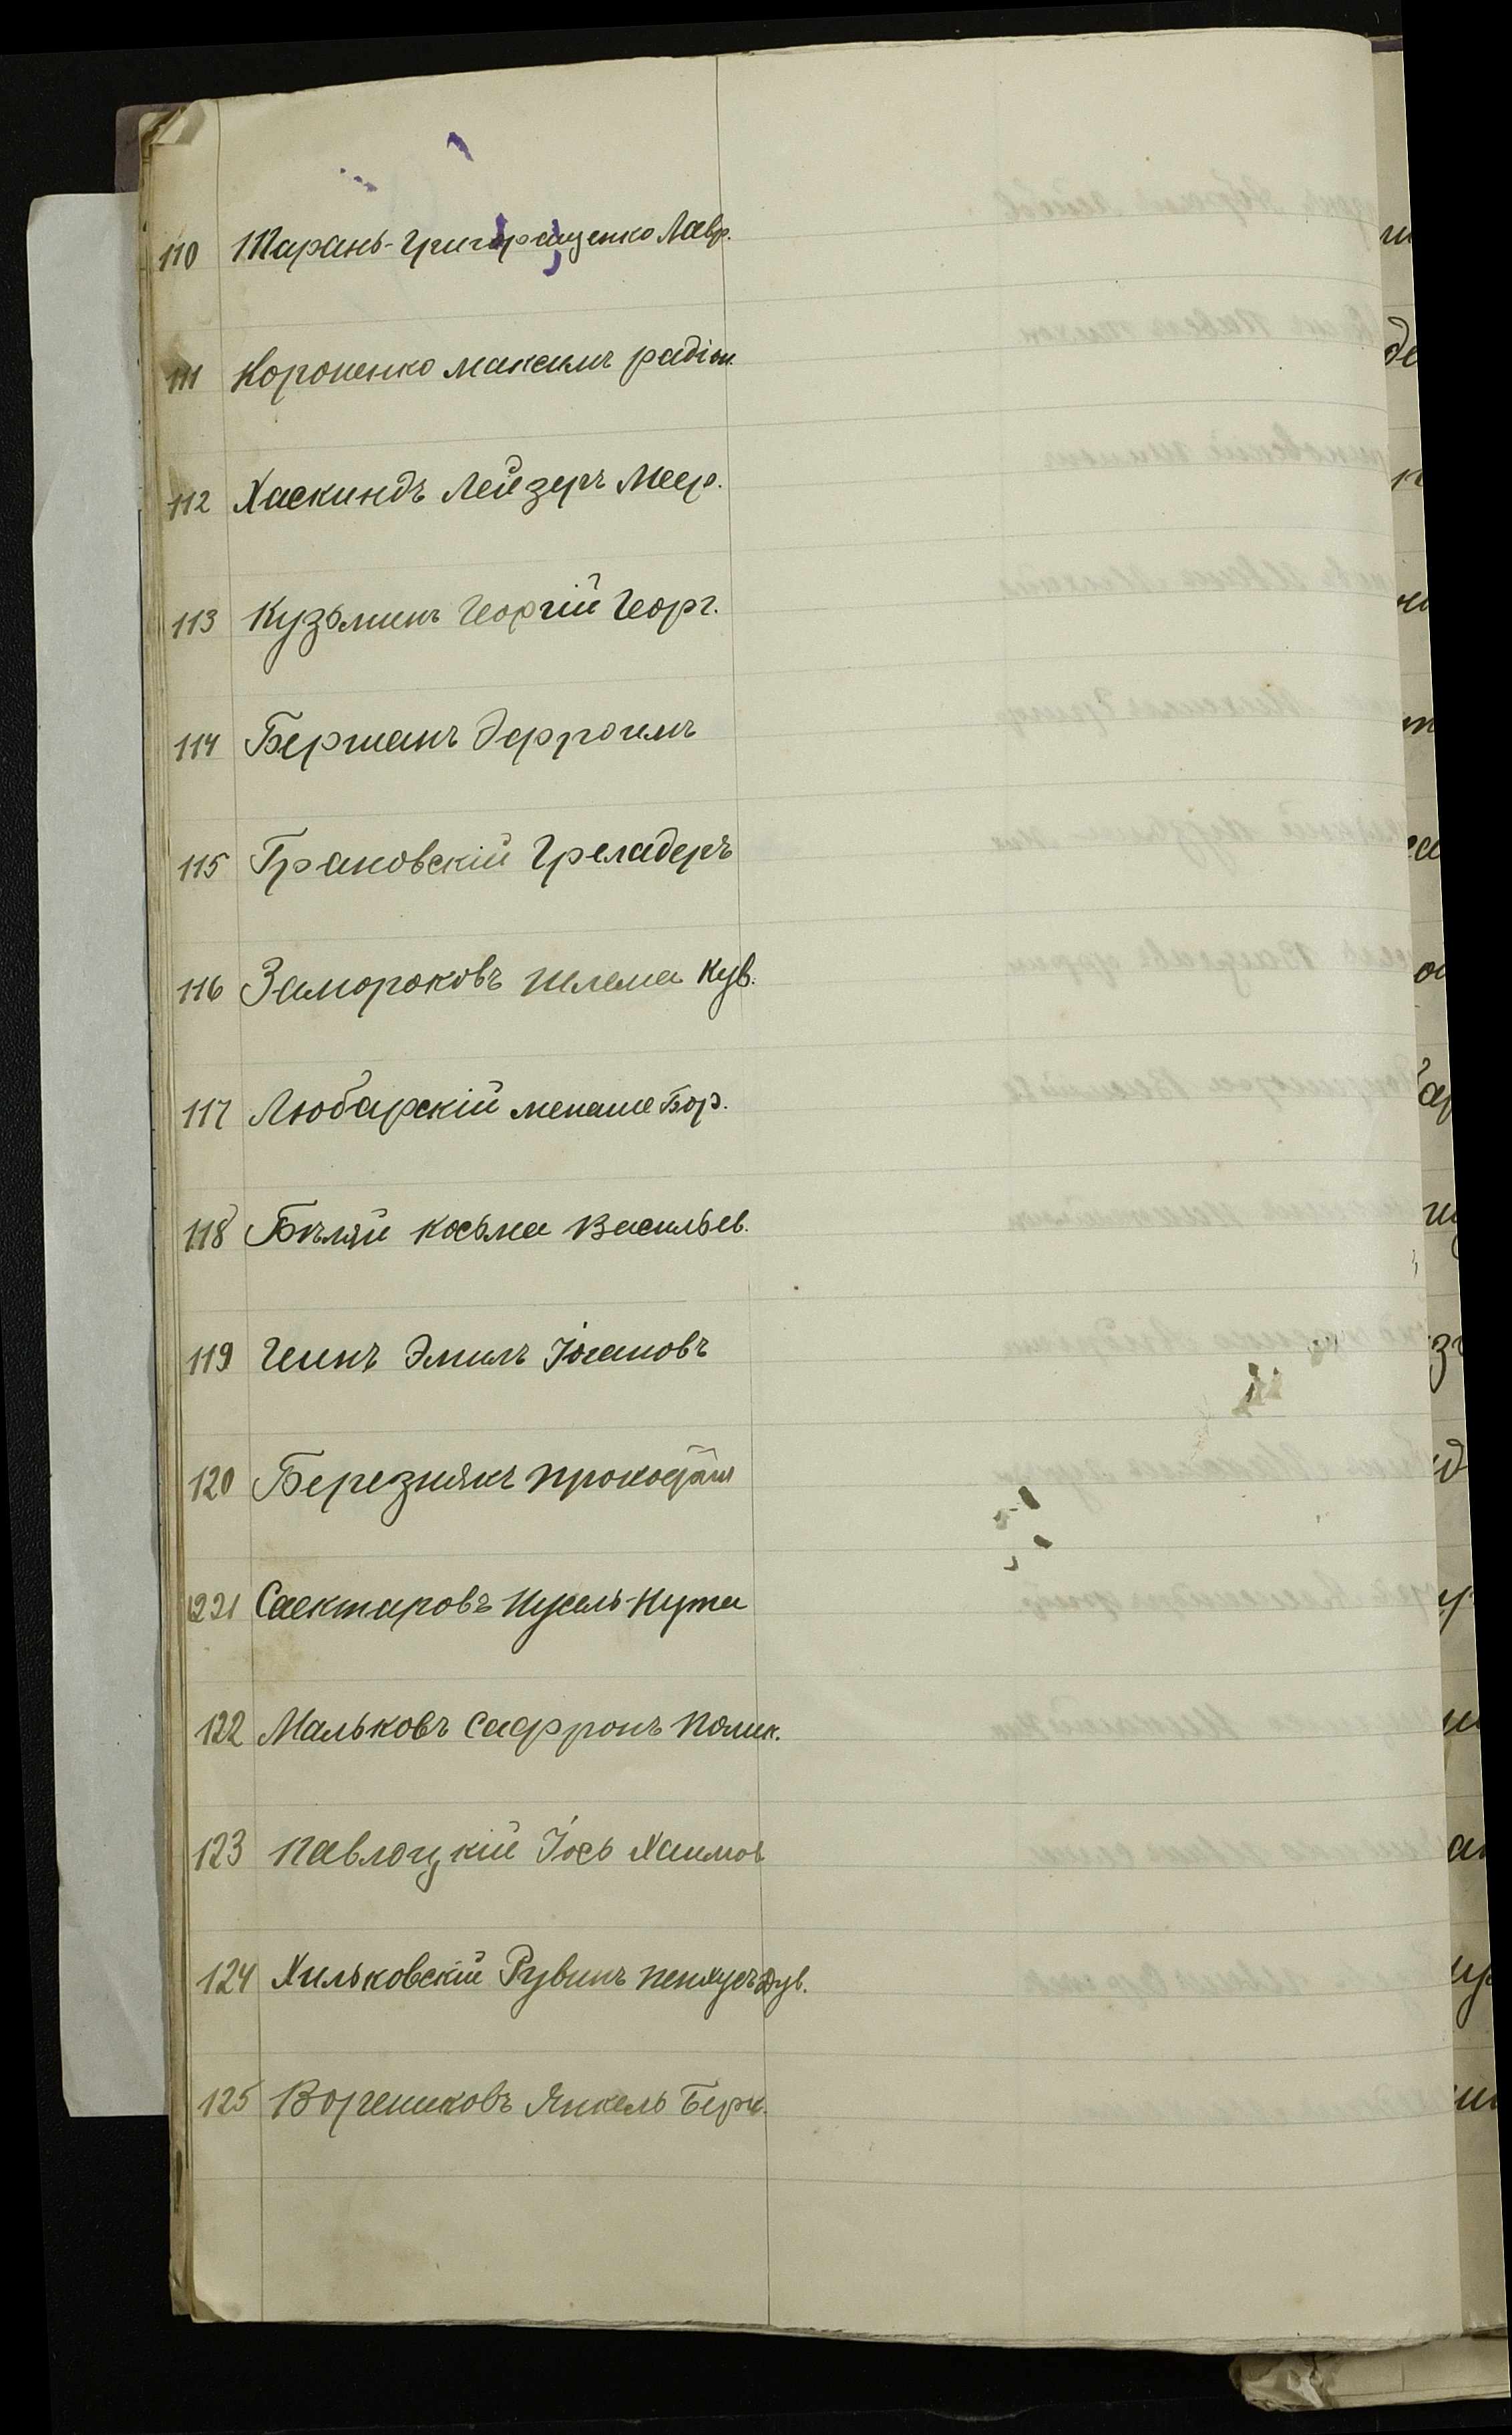 110 Тарань-Григоращенко Лавр.
111 Короненко Максимъ радіон.
112 Хаскиндъ Лейзеръ Меер.
113 Кузьминъ Георгій Георг.
114 Берманъ Эфроимъ
115 Грановскій
116 Замороковъ Шлема Кув.
117 Любарскій менаше Бор.
118 Бѣлый Косьма Васильев.
119 Геинъ Эмиль Іогановъ
120 Березнякъ прокофій
1221 Саектаровъ Нусель-Нута
122 Мальковъ Сафронъ полик.
123 Павлоцкій Іось Хаимов
124 Хильковскій Рувинъ пенхусъ Дув.
125 Янкель Берк.